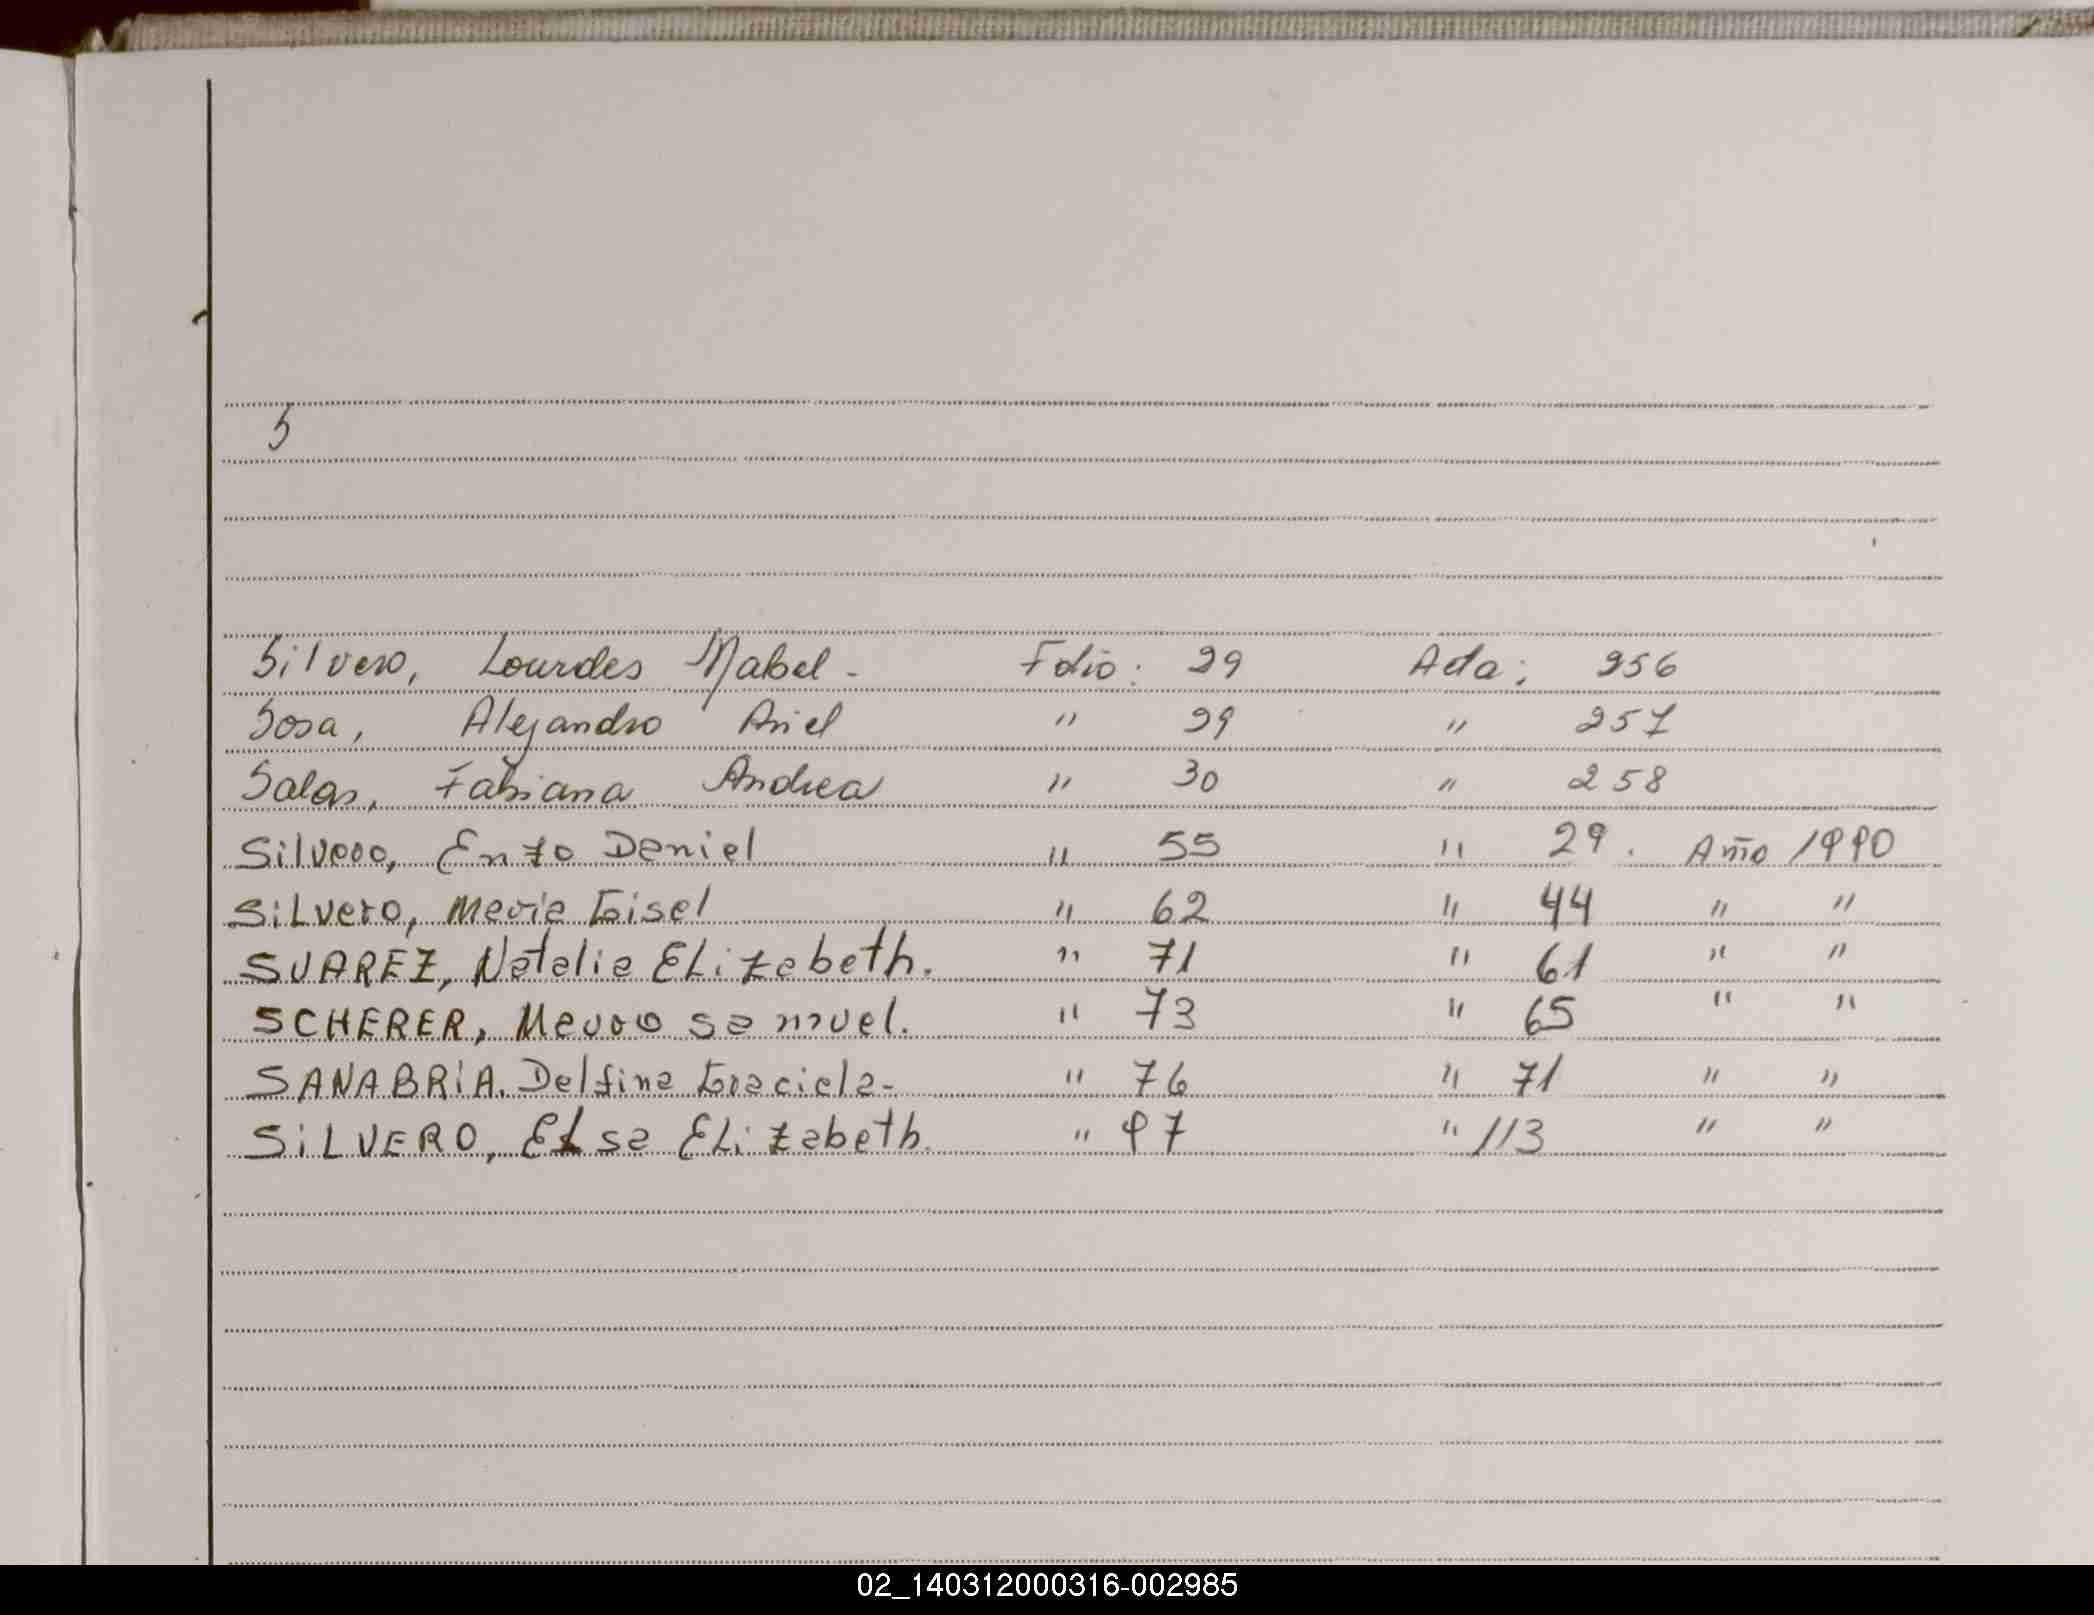 S
Silvero, Lourdes Mabel - Folio: 29 Acta: 256
Sosa, Alejandro Ariel " 29 " 257
Salas, Fabiana Andrea " 30 " 258
Silvero, Enzo Daniel " 55 " 29. Año 1990
SiLvero, Maria Gisel " 62 " 44 " "
SUAREZ, Natalia ELizabeth. " 71 " 61 " "
SCHERER, Mauro samuel. " 73 " 65 " "
SANABRiA. Delfina Graciela- " 76 " 71 " "
SiLVERO, ELsa ELizabeth. " 97 " 113 " "
02_140312000316-002985